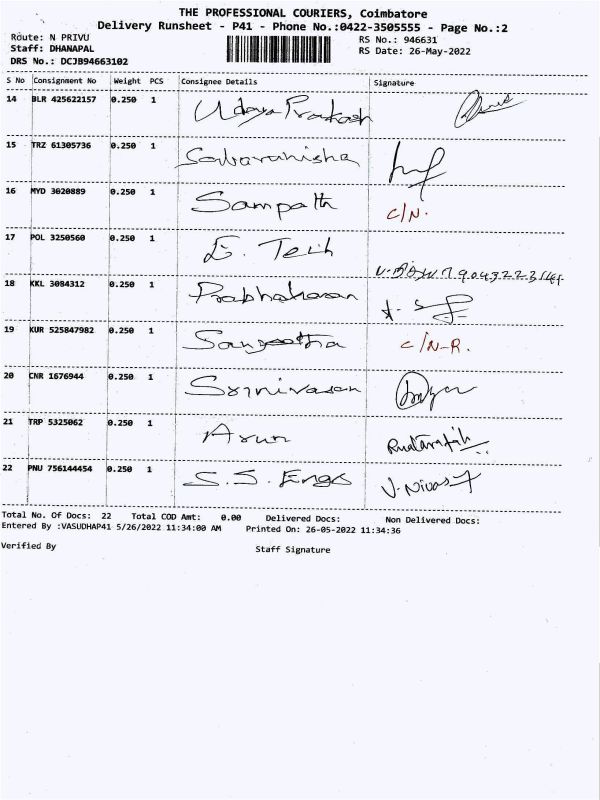 THE PROFESSIONAL COURIERS, Coimbatore
Delivery Runsheet - P41 - Phone No.:0422-3505555 - Page No.:2
Route: N PRIVU RS No.: 946631
Staff: DHANAPAL RS Date: 26-May-2022
DRS No.: DCJB94663102
S No Consignment No Weight PCS Consignee Details Signature
14 BLR 425622157 0.250 1 Udaya Prakash
15 TRZ 61305736 0.250 1 Sabaranisha
16 MYD 3020889 0.250 1 Sampath C/N.
17 POL 3250560 0.250 1 E. Tech
18 KKL 3084312 0.250 1 Prabhakaran
19 KUR 525847982 0.250 1 Sangeetha C/N-R.
20 CNR 1676944 0.250 1 Srinivasan
21 TRP 5325062 0.250 1 Arun
22 PNU 756144454 0.250 1 S.S. Engg J. Nivas
Total No. Of Docs: 22 Total COD Amt: 0.00 Delivered Docs: Non Delivered Docs:
Entered By :VASUDHAP41 5/26/2022 11:34:00 AM Printed On: 26-05-2022 11:34:36
Verified By Staff Signature